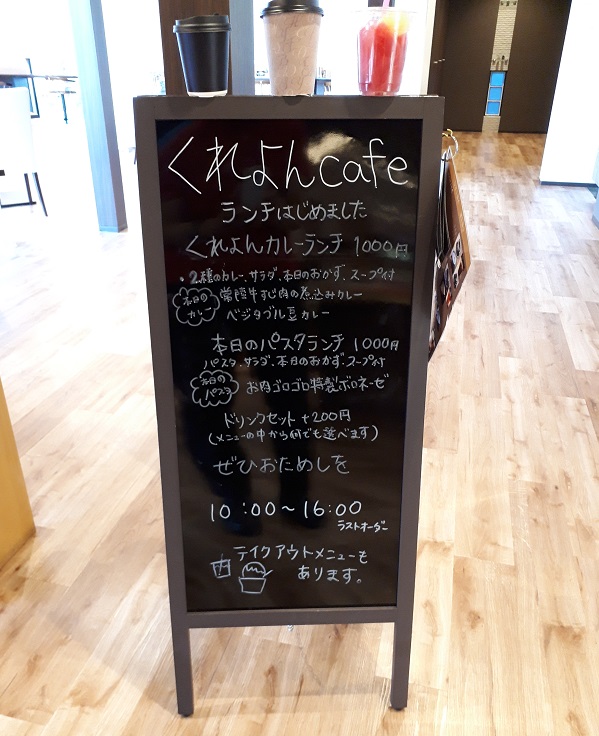 くれよんcafe
ランチはじめました
くれよんカレーランチ 1000円
・2種のカレー、サラダ、本日のおかず、スープ付
本日のカレー 常陸牛すじ肉の煮込みカレー
ベジタブル豆カレー
本日のパスタランチ 1000円
パスタ、サラダ、本日のおかず、スープ付
本日のパスタ お肉ゴロゴロ特製ボロネーゼ
ドリンクセット +200円
(メニューの中から何でも選べます)
ぜひおためしを
10:00～16:00
ラストオーダー
テイクアウトメニューも
あります。